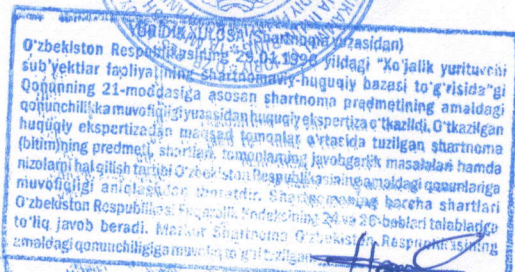 YURIDIK XULOSA (Shartnoma yuzasidan)
O'zbekiston Respublikasining 29.01.1998 yildagi "Xo'jalik yurituvchi
sub'yektlar faoliyatining shartnomaviy-huquqiy bazasi to'g'risida"gi
Qonunning 21-moddasiga asosan shartnoma predmetining amaldagi
qonunchilikka muvofiqligi yuzasidan huquqiy ekspertiza o'tkazildi. O'tkazilgan
huquqiy ekspertizadan maqsad tomonlar o'rtasida tuzilgan shartnoma
(bitim)ning predmeti, shartlari, tomonlarning javobgarlik masalalari hamda
nizolarni hal qilish tartibi O'zbekiston Respublikasining amaldagi qonunlariga
muvofiqligi aniqlashdan iboratdir. Shartnomaning barcha shartlari
O'zbekiston Respublikasi Fuqarolik Kodeksining va boblari talablariga
to'liq javob beradi. Mazkur Shartnoma O'zbekiston Respublikasining
amaldagi qonunchiligiga muvofiq to'g'ri tuzilgan